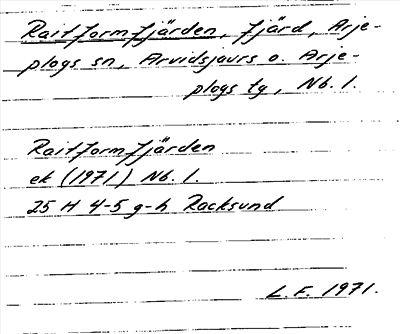 Raitformfjärden, fjärd, Arje-
plogs sn, Arvidsjaurs o. Arje-
plogs tg, Nb. l.
Raitformfjärden
ek (1971) Nb. l.
25 H 4-5 g-h Racksund
L.F. 1971.